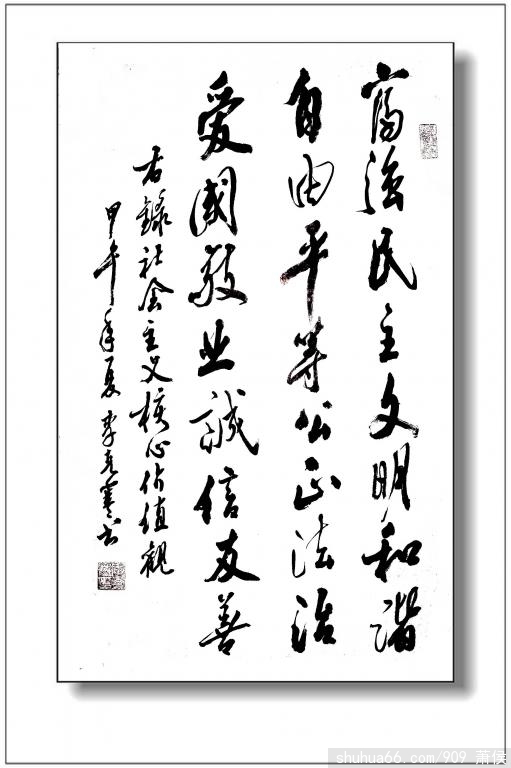 富强民主文明和谐
自由平等公正法治
爱國敬业誠信友善
右錄社会主义核心价值观
甲午年夏李克寒书
shuhua66.com/909 萧侯